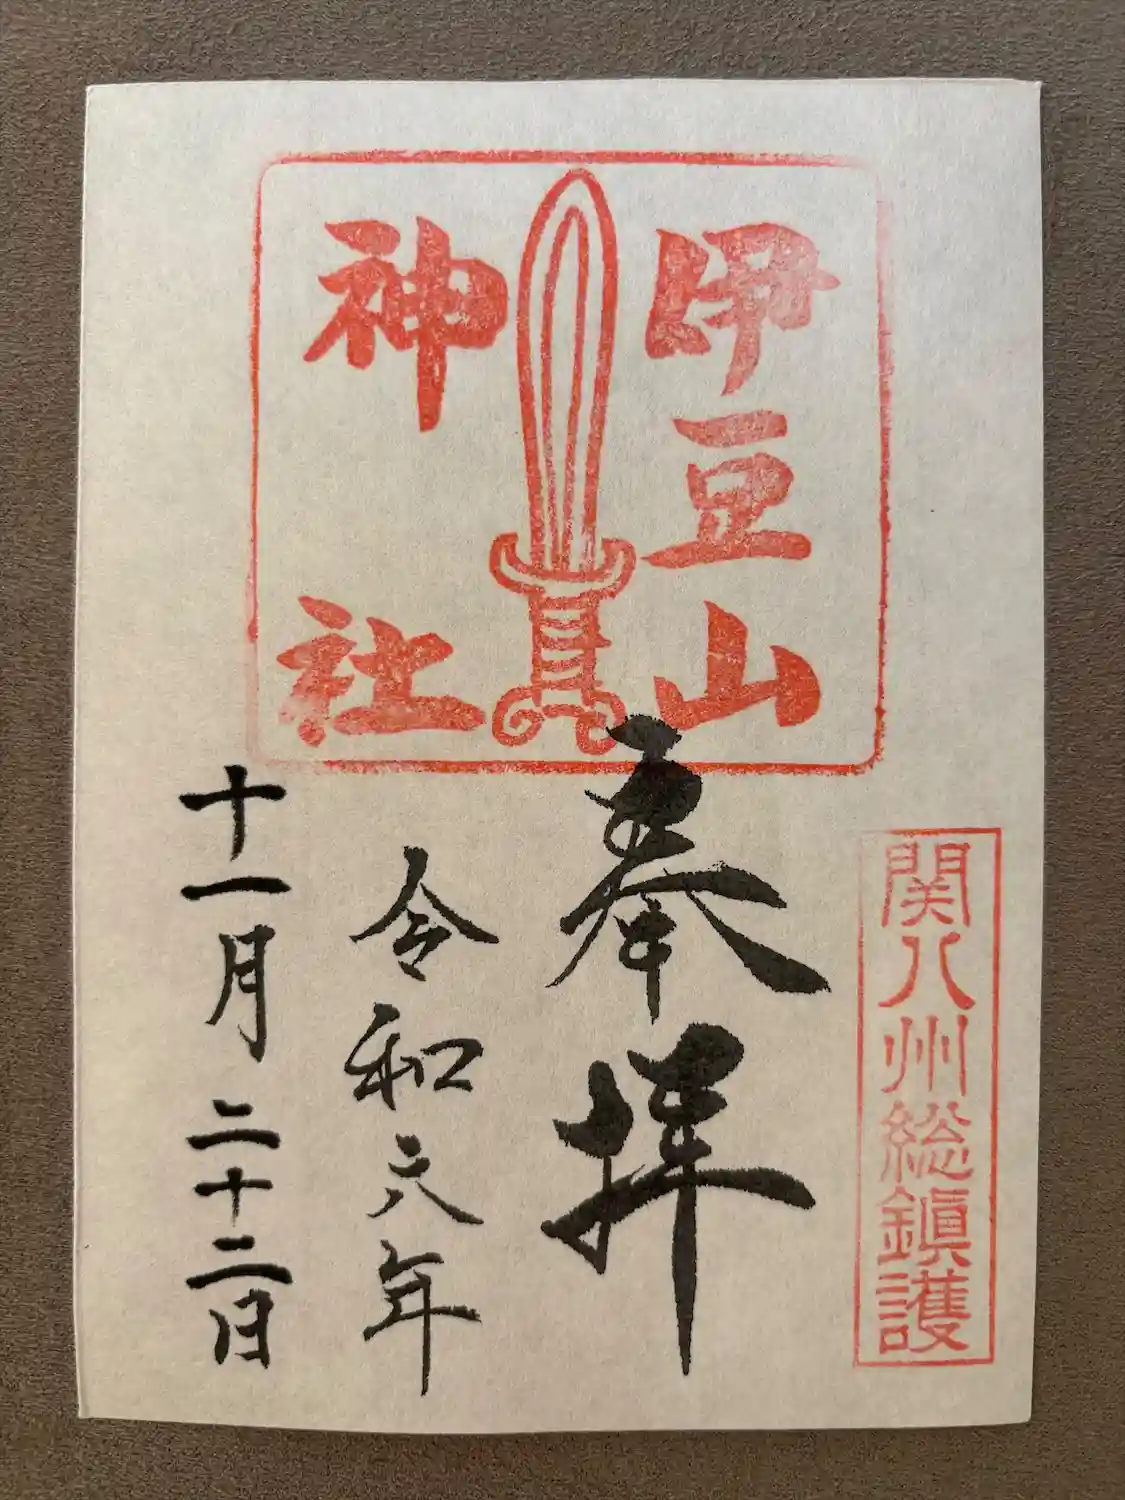 関八州総鎮護
伊豆山
神社
奉拝
令和六年
十一月二十二日